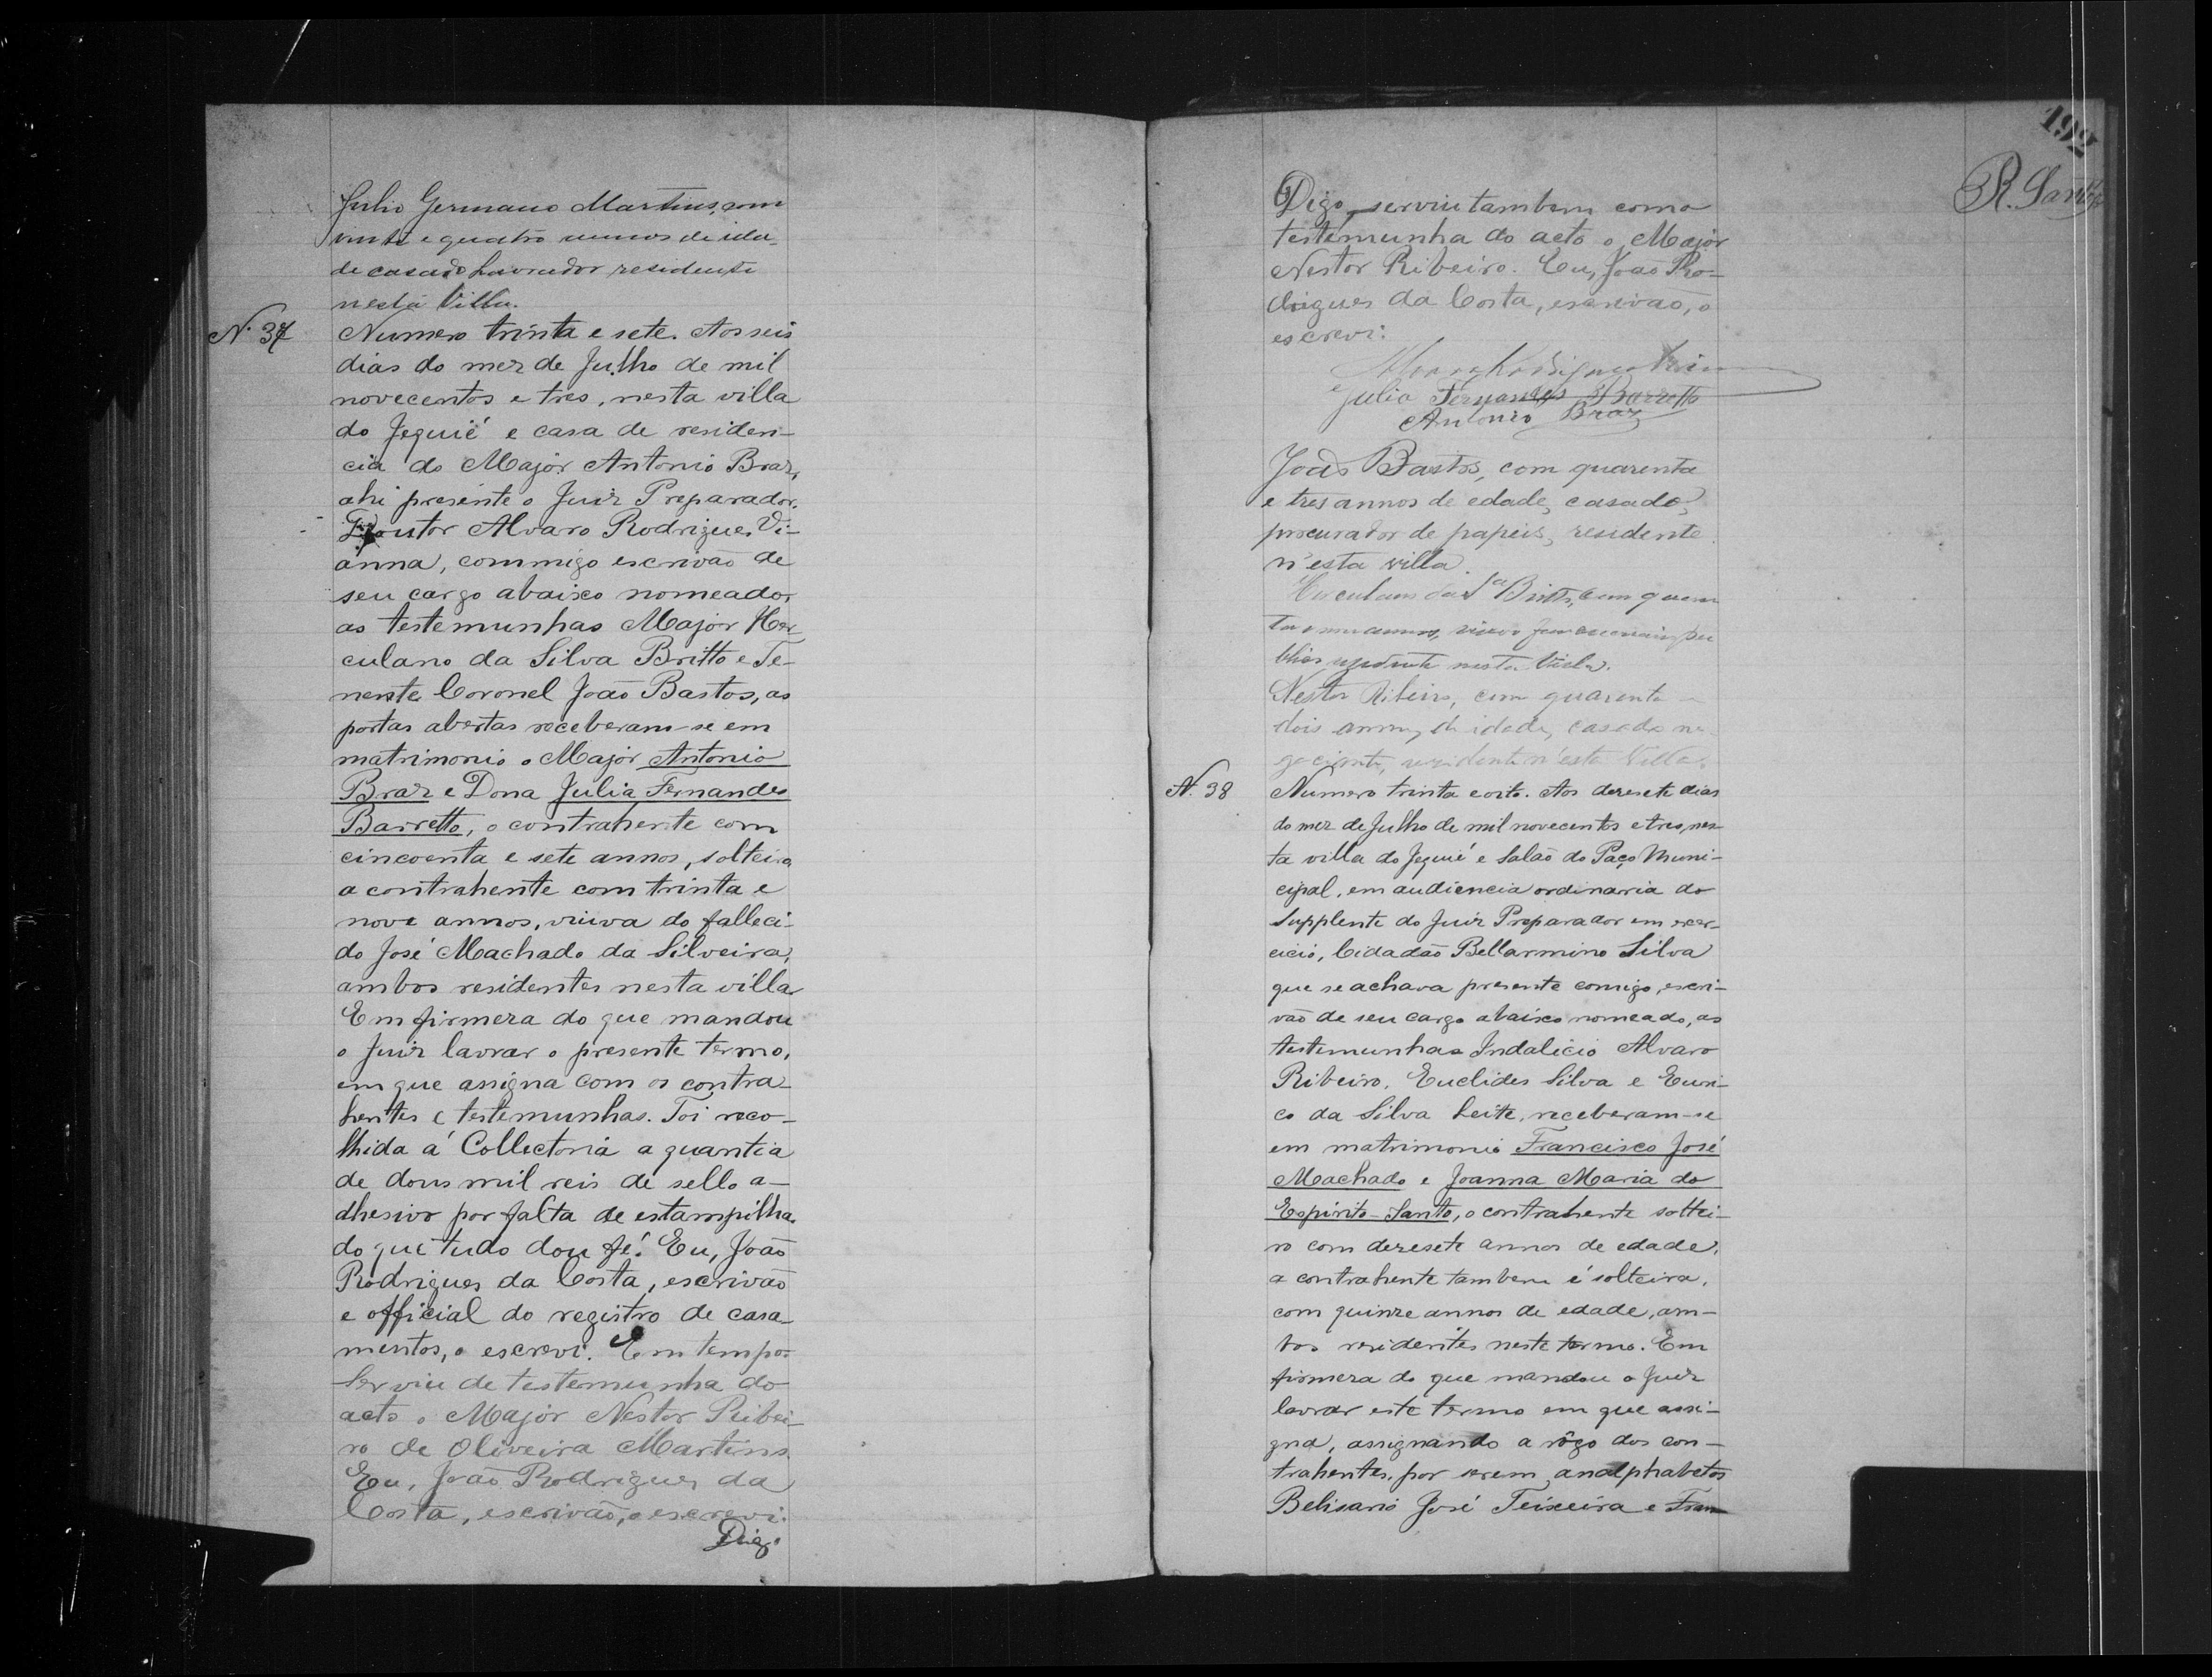 Julio Germano Martins, com
vinte e quatro annos de ida-
de casado Lavrador residente
nesta Villa.
N. 37
Numero trinta e sete. Aos seis
dias do mez de Julho de mil
novecentos e tres, nesta villa
do Jequié e casa de residen-
cia do Major Antonio Braz,
ahi presente o Juiz Preparador,
Doutor Alvaro Rodrigues Vi-
anna, commigo escrivão de
seu cargo abaixo nomeado,
as testemunhas Major Her-
culano da Silva Britto e Te-
nente Coronel João Bastos, as
portas abertas receberam-se em
matrimonio o Major Antonio
Braz e Dona Julia Fernandes
Barretto, o contrahente com
cincoenta e sete annos, solteiro
a contrahente com trinta e
nove annos, viuva do falleci-
do José Machado da Silveira,
ambos residentes nesta villa.
Em firmeza do que mandou
o Juiz lavrar o presente termo,
em que assigna com os contra-
hentes e testemunhas. Foi reco-
lhida á Collectoria a quantia
de dous mil reis de sello a-
dhesivo por falta de estampilha.
do que tudo dou fé. Eu, João
Rodrigues da Costa, escrivão
e official do registro de casa-
mentos, o escrevi. Em tempo:
Serviu de testemunha do
acto o Major Nestor Ribei-
ro de Oliveira Martins.
Eu, João Rodrigues da
Costa, escrivão, o escrevi.
Digo
192
R. Santos
Digo, serviu tambem como
testemunha do acto o Major
Nestor Ribeiro. Eu, João Ro-
drigues da Costa, escrivão, o
escrevi:
Alvaro Rodrigues Vianna
Julia Fernandes Barretto
Antonio Braz
João Bastos, com quarenta
e tres annos de edade, casado,
procurador de papeis, residente
n'esta villa.
Herculano da Sa Britto, com quaren
ta e um annos, viuvo funccionario pu
blico residente nesta Villa.
Nestor Ribeiro, com quarenta
dois annos de idade, casado ne
gociante, residente n'esta Villa.
N. 38
Numero trinta e oito. Aos dezesete dias
do mez de Julho de mil novecentos e tres, nes-
ta villa do Jequié e Salão do Paço Muni-
cipal, em audiencia ordinaria do
Supplente do Juiz Preparador em exer-
cicio, Cidadão Bellarmino Silva
que se achava presente comigo, escri-
vão de seu cargo abaixo nomeado, as
testemunhas Indalicio Alvaro
Ribeiro, Euclides Silva e Euri-
co da Silva Leite, receberam-se
em matrimonio Francisco José
Machado e Joanna Maria do
Espirito-Santo, o contrahente soltei-
ro com dezesete annos de edade,
a contrahente tambem é solteira,
com quinze annos de edade, am-
bos residentes neste termo. Em
firmeza do que mandou o Juiz
lavrar este termo em que assi-
gna, assignando a rôgo dos con-
trahentes, por serem analphabetos
Belisario José Teixeira e Fran